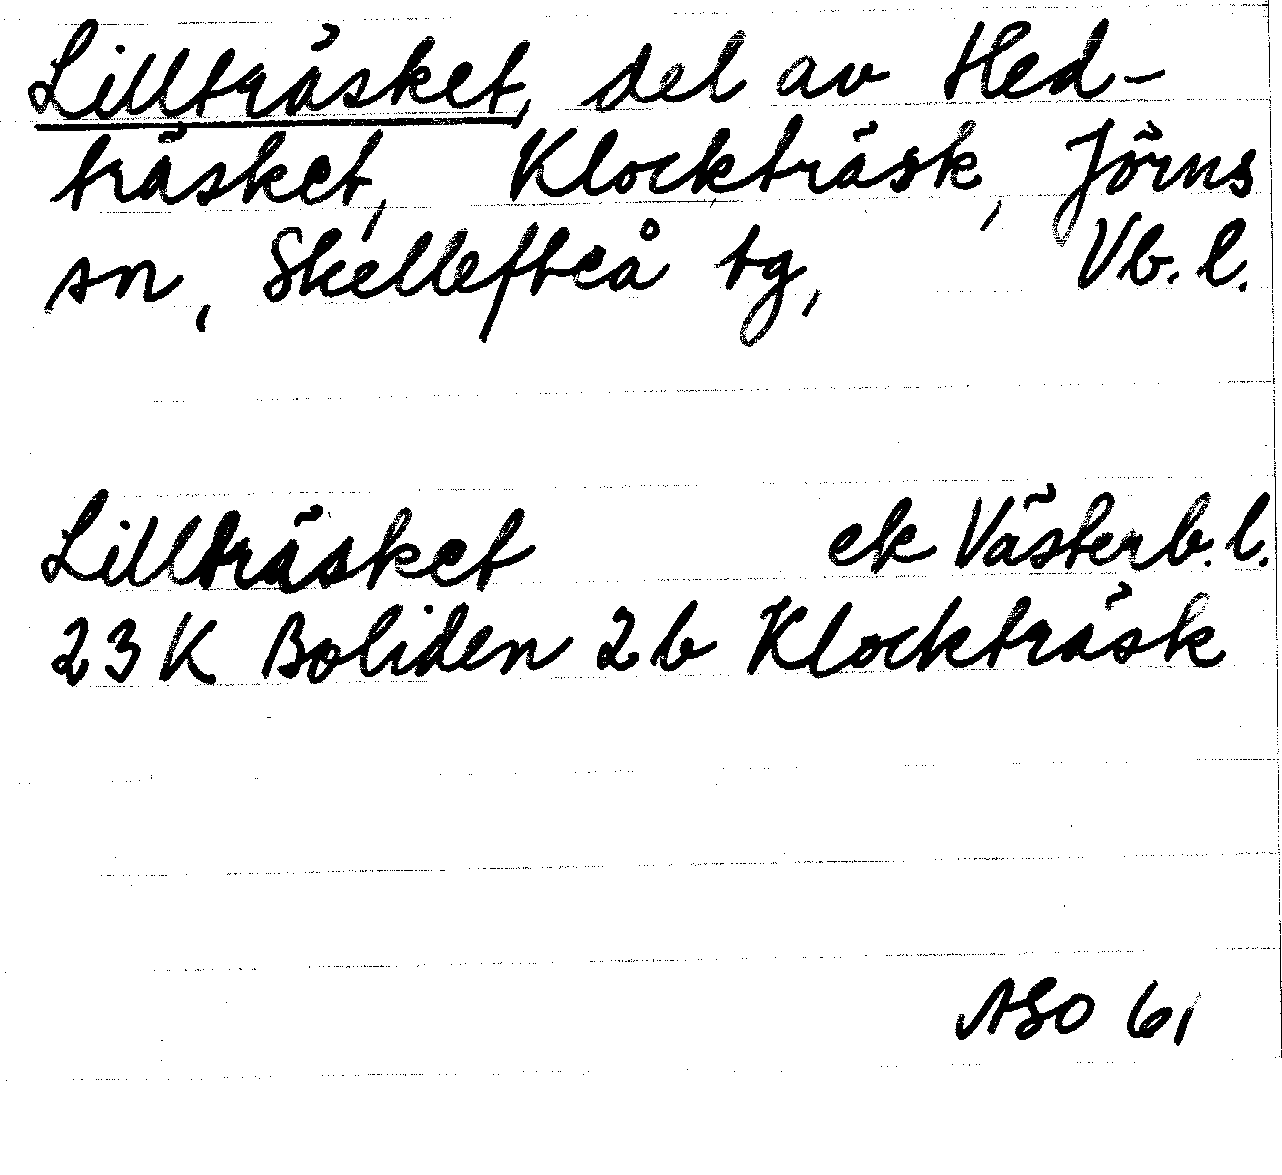 Lillträsket, del av Hed-
träsket, Klockträsk, Jörns
sn, Skellefteå tg, Vb. l.
Lillträsket ek Västerb. l.
23 K Boliden 2b Klockträsk
ASO 61